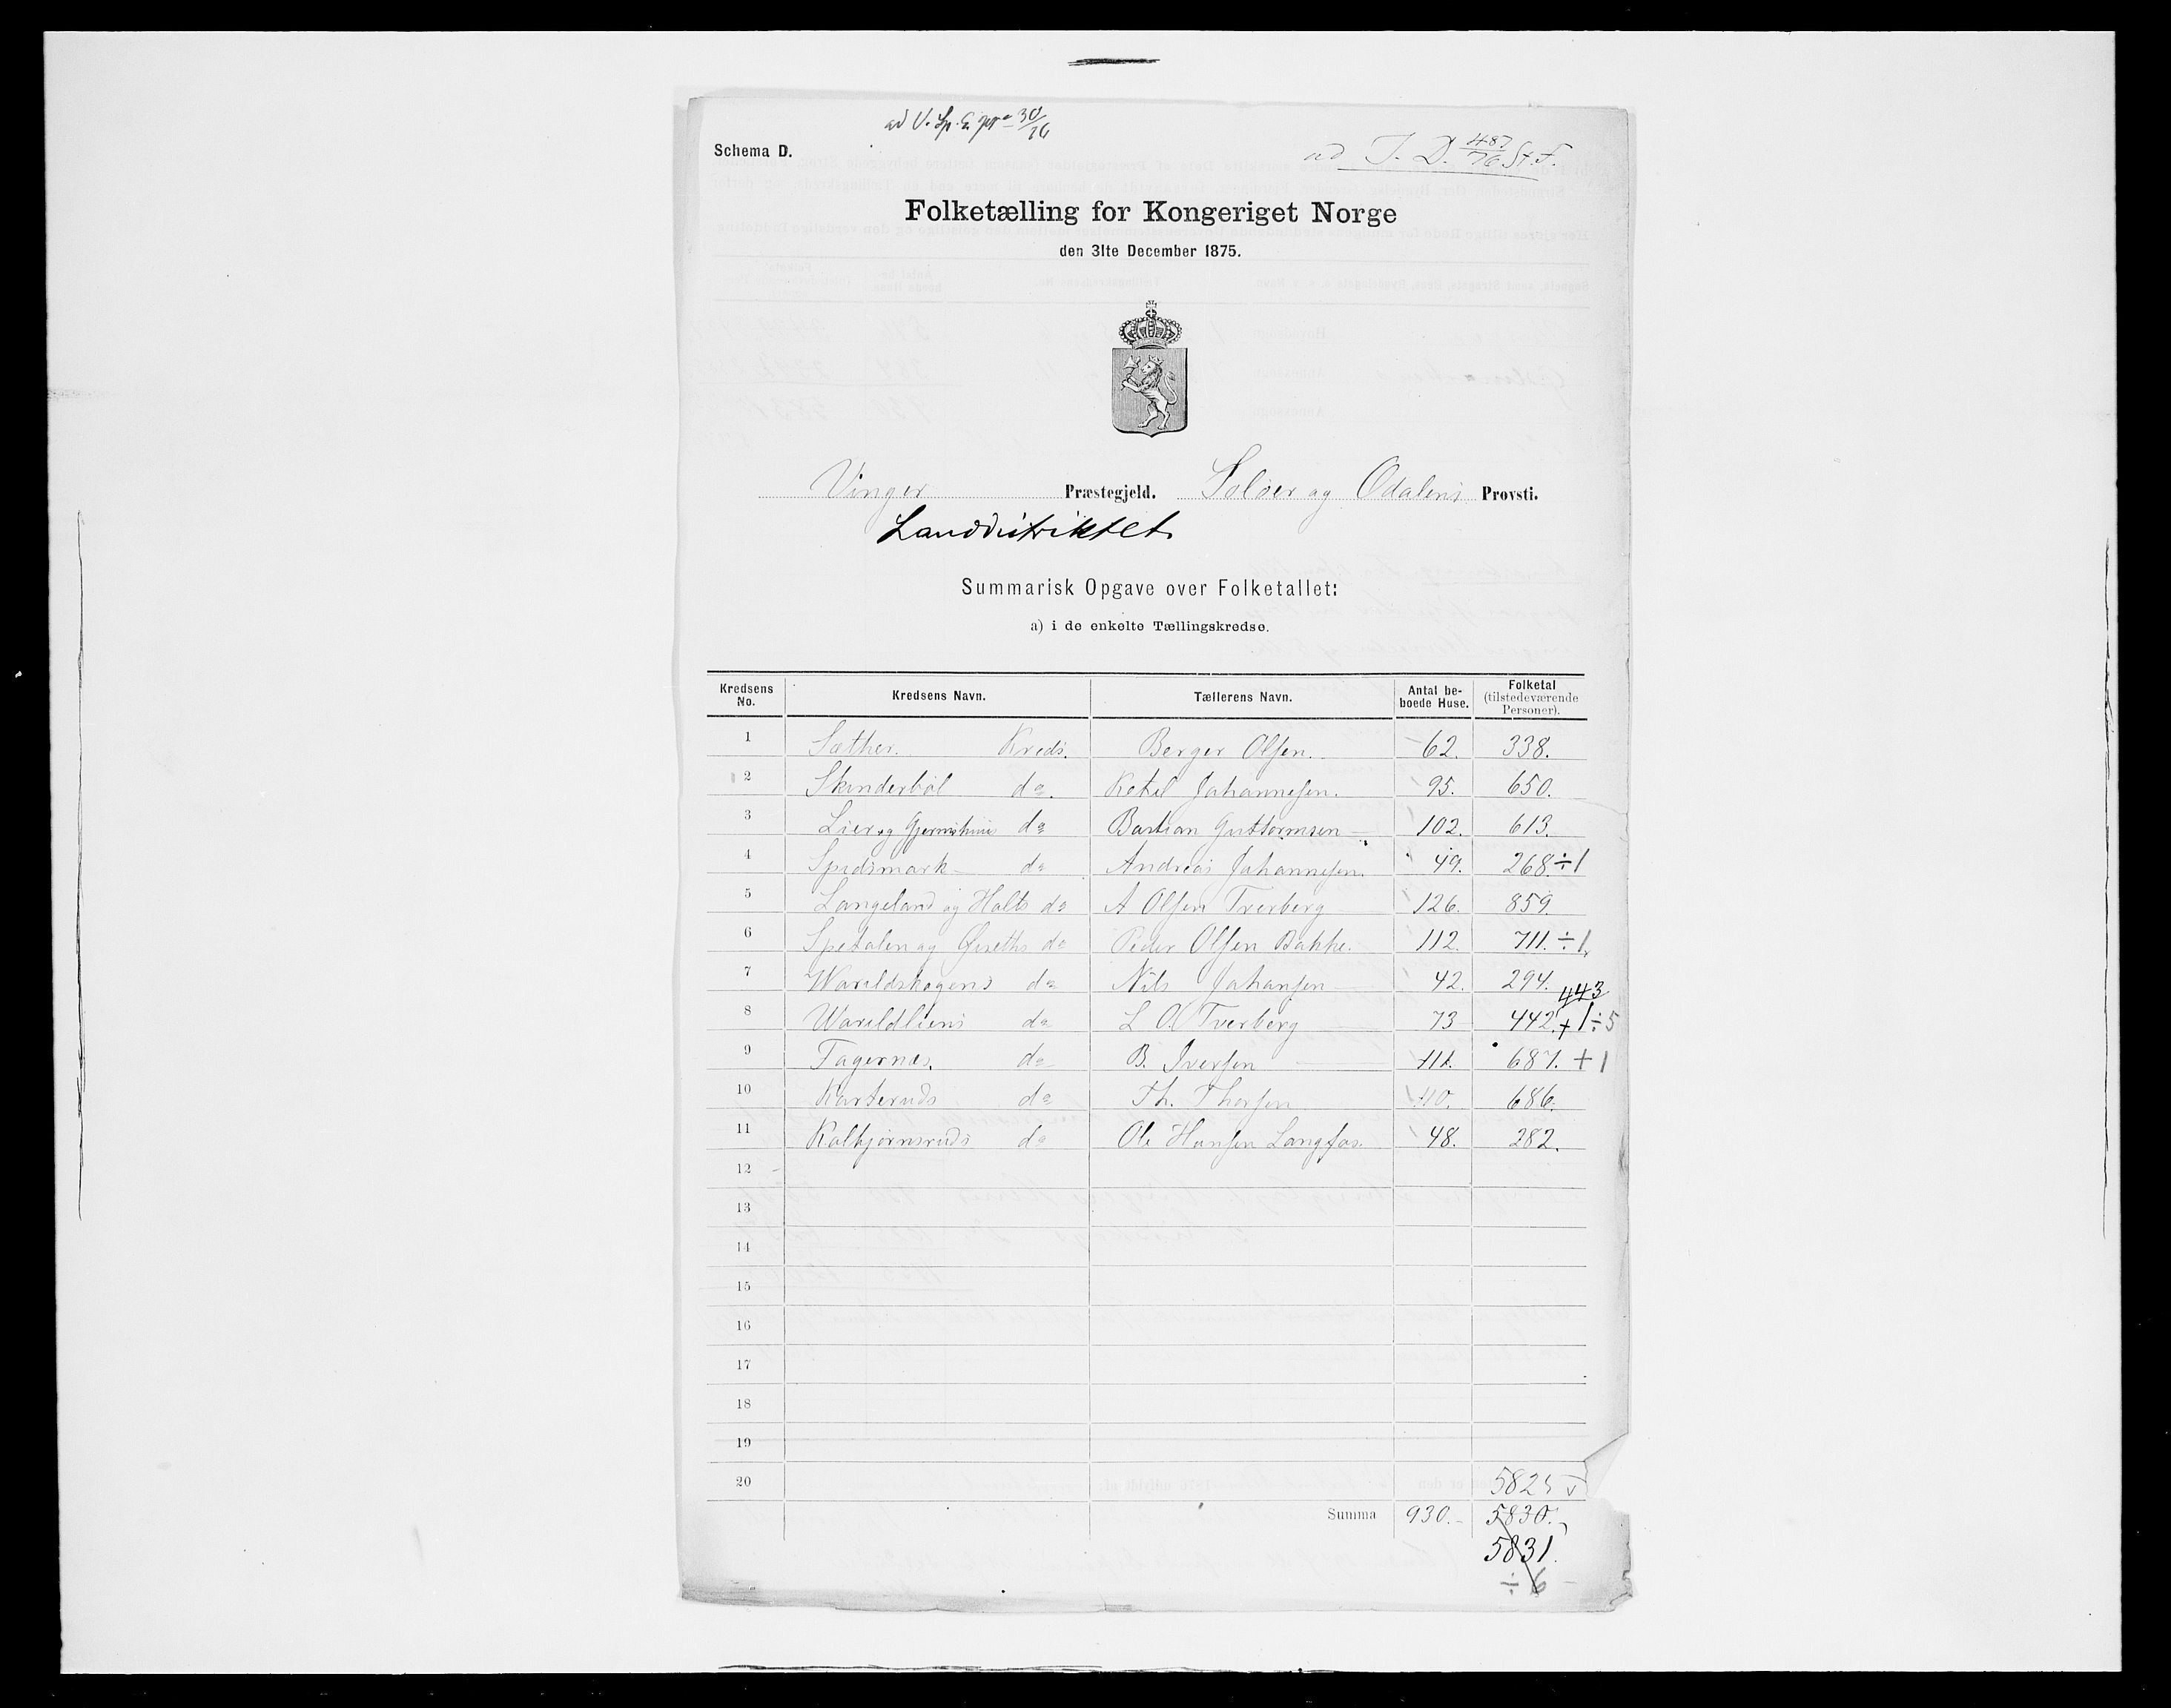 ad V. Sp. E. pr 30/76
Schema D.
ad J. D. 487/76 St. F.
Folketælling for Kongeriget Norge
den 31te December 1875.
Vinger Præstegjeld. Soløer og Odalens Provsti.
Landdistriktet.
Summarisk Opgave over Folketallet:
a) i de enkelte Tællingskredse.
Kredsens No. Kredsens Navn. Tællerens Navn. Antal beboede Huse. Folketal (tilstedeværende Personer).
1 Sæther. Kreds. Berger Olsen. 62. 338.
2 Skinderböl do. Ketil Johannesen. 95. 650.
3 Lier og do Bastian Guttormsen 102. 613.
4 Spidsmark do Andreas Johannesen. 49. 268. ÷1
5 Langeland og Holts do A Olsen Tverberg 126. 859.
6 Spetalen og do Peder Olsen Bakke. 112. 711. ÷1
7 Varaldskogens do Nils Johansen 42. 294.
443
8 Varaldliens do L O Tverberg 73 442. +1÷5
9 Fagernæs. do B. Iversen 111. 687. +1
10 Karteruds do Th. Thorsen 110. 686.
11 Kalbjørnsruds do Ole Hansen Langfos. 48. 282.
12
13
14
15
16
17
18
19
20 5825
Summa 930. 5830.
5831.
÷ 6